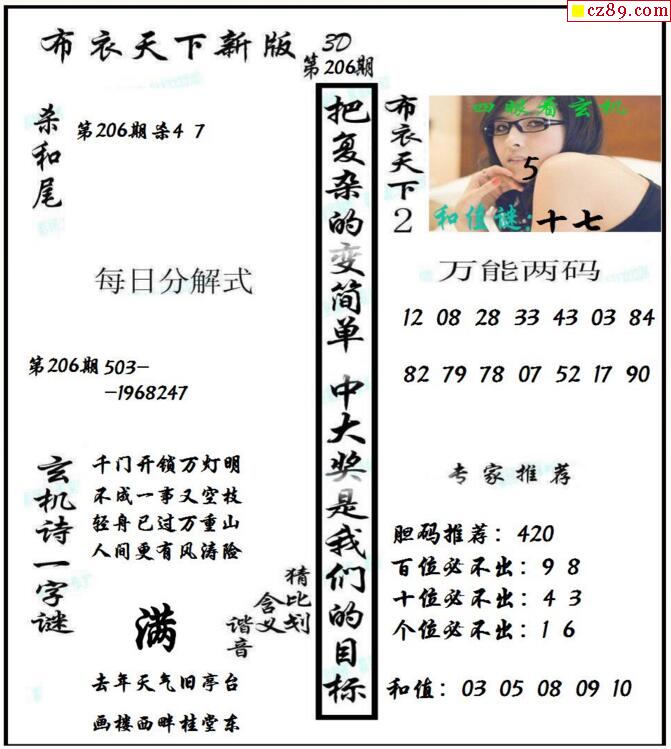 cz89.com
布衣天下新版
3D
第206期
杀和尾
第206期杀4 7
每日分解式
第206期 503-
-1968247
玄机诗一字谜
千门开锁万灯明
不成一事又空枝
轻舟已过万重山
人间更有风涛险
满
猜比划
含义
谐音
去年天气旧亭台
画楼西畔桂堂东
把复杂的变简单 中大奖是我们的目标
布衣天下2
四眼看玄机
5
和值谜:十七
万能两码
12 08 28 33 43 03 84
82 79 78 07 52 17 90
专家推荐
胆码推荐：420
百位必不出：9 8
十位必不出：4 3
个位必不出：1 6
和值：03 05 08 09 10